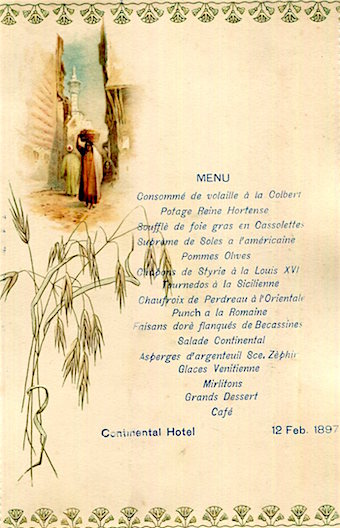 MENU
Consommé de volaille à la Colbert
Potage Reine Hortense
Soufflé de foie gras en Cassolettes
Suprème de Soles a l'américaine
Pommes Olives
Chapons de Styrie à la Louis XVI
Tournedos à la Sicilienne
Chaufroix de Perdreau à l'Orientale
Punch a la Romaine
Faisans dorè flanqués de Becassines
Salade Continental
Asperges d'argenteuil Sce. Zèphir
Glaces Venitienne
Mirlitons
Grands Dessert
Café
Continental Hotel 12 Feb. 1897